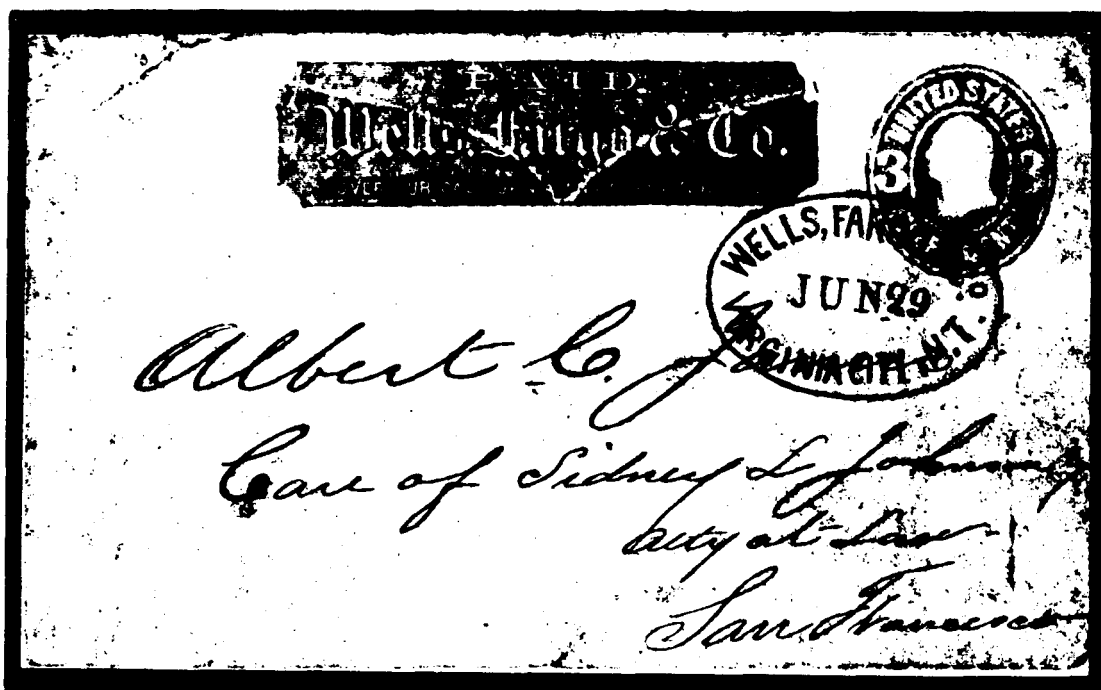 PAID
Wells, Fargo & Co.
OVER OUR
UNITED STATES
3 3
WELLS, FAR
JUN 29
VIRGINIA CITY N.T.
Albert C.
Care of Sidney L Johnson
Atty at Law
San Francisco